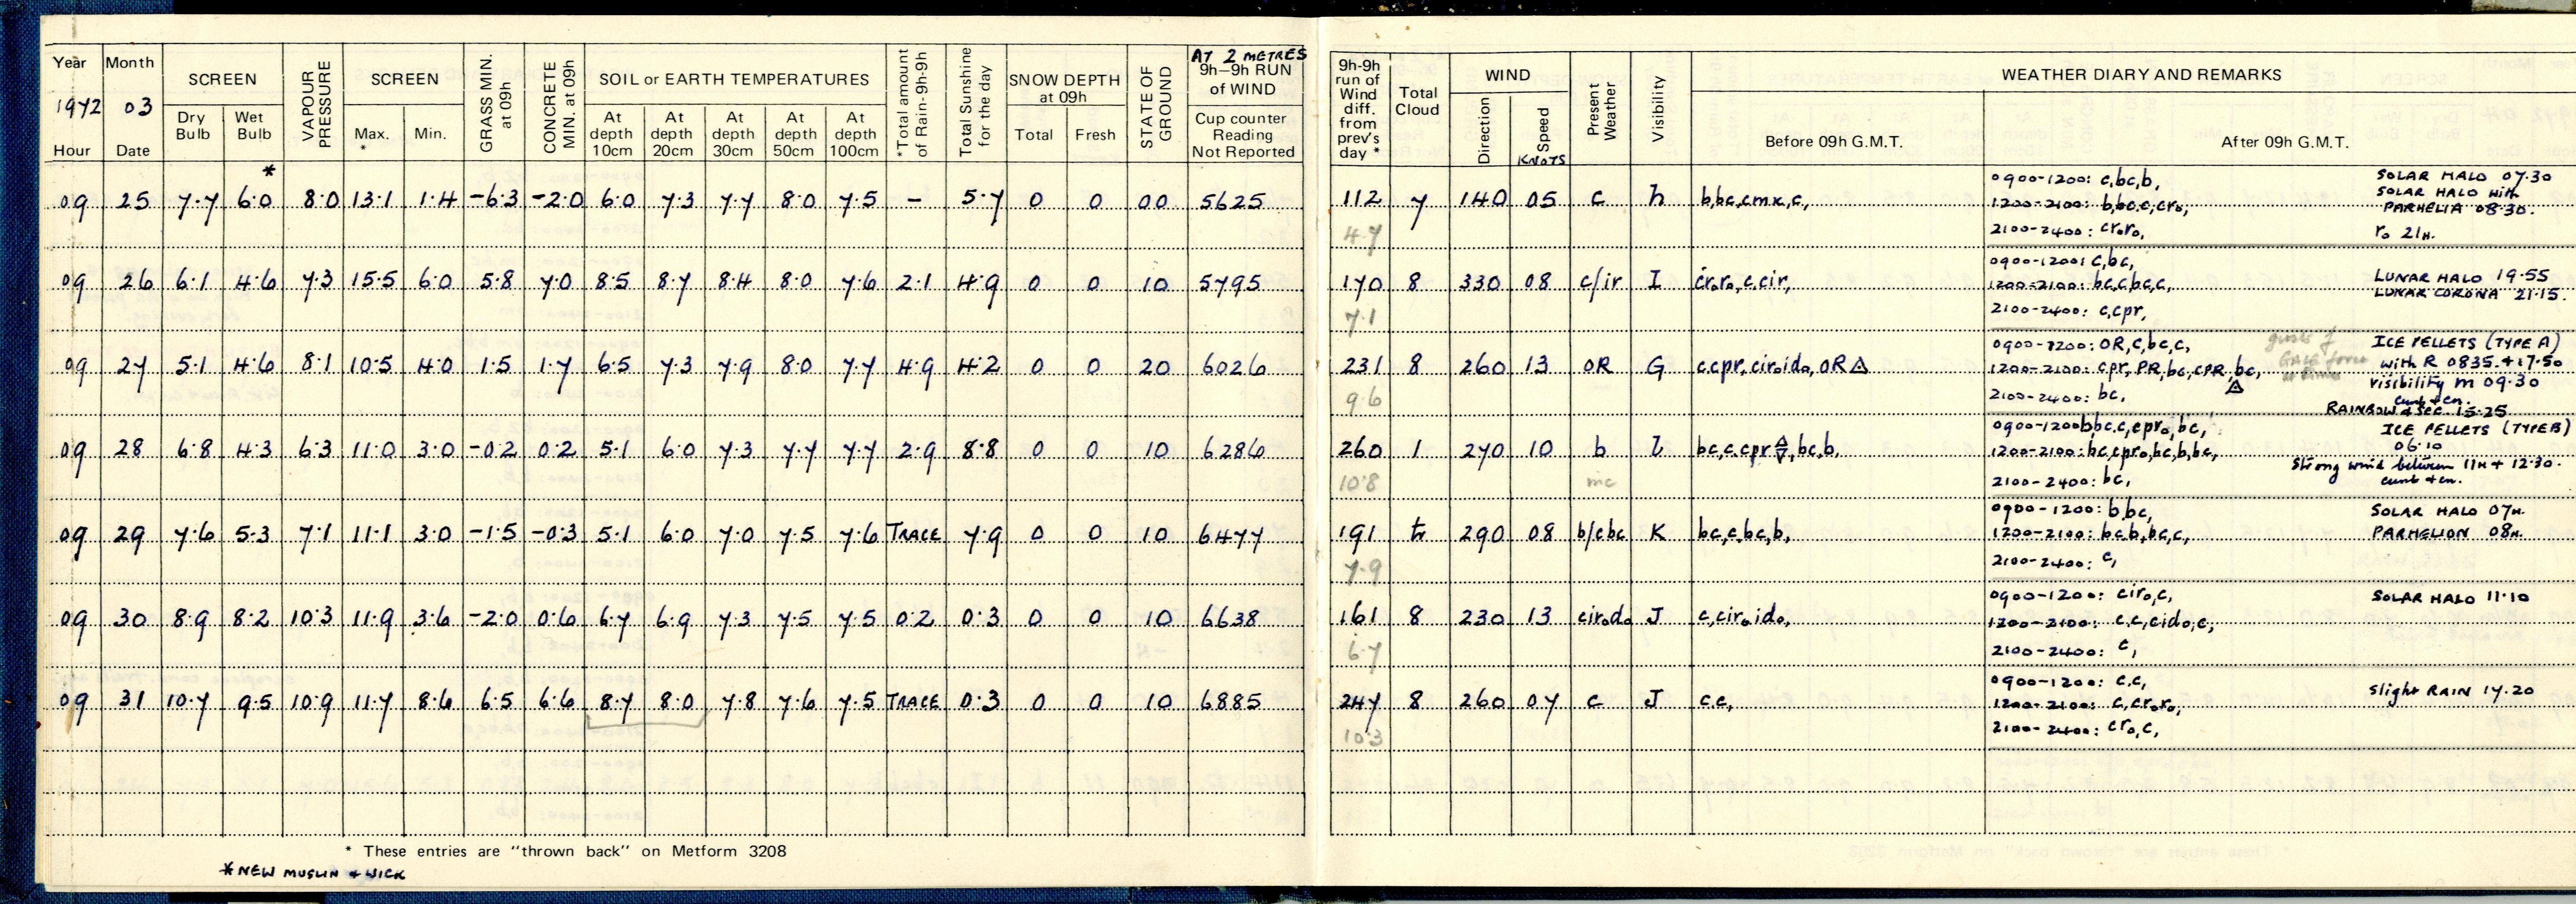 Year Month SCREEN VAPOUR PRESSURE SCREEN GRASS MIN. at 09h CONCRETE MIN. at 09h SOIL or EARTH TEMPERATURES *Total amount of Rain-9h-9h Total Sunshine for the day SNOW DEPTH at 09h STATE OF GROUND AT 2 METRES 9h-9h RUN of WIND
1972 03 Dry Bulb Wet Bulb Max. * Min. At depth 10cm At depth 20cm At depth 30cm At depth 50cm At depth 100cm Total Fresh Cup counter Reading Not Reported
Hour Date
*
09 25 7.7 6.0 8.0 13.1 1.4 -6.3 -2.0 6.0 7.3 7.7 8.0 7.5 - 5.7 0 0 00 5625
09 26 6.1 4.6 7.3 15.5 6.0 5.8 7.0 8.5 8.7 8.4 8.0 7.6 2.1 4.9 0 0 10 5795
09 27 5.1 4.6 8.1 10.5 4.0 1.5 1.7 6.5 7.3 7.9 8.0 7.7 4.9 4.2 0 0 20 6026
09 28 6.8 4.3 6.3 11.0 3.0 -0.2 0.2 5.1 6.0 7.3 7.7 7.7 2.9 8.8 0 0 10 6286
09 29 7.6 5.3 7.1 11.1 3.0 -1.5 -0.3 5.1 6.0 7.0 7.5 7.6 TRACE 7.9 0 0 10 6477
09 30 8.9 8.2 10.3 11.9 3.6 -2.0 0.6 6.7 6.9 7.3 7.5 7.5 0.2 0.3 0 0 10 6638
09 31 10.7 9.5 10.9 11.7 8.6 6.5 6.6 8.7 8.0 7.8 7.6 7.5 TRACE 0.3 0 0 10 6885
* These entries are "thrown back" on Metform 3208
*NEW MUSLIN + WICK
9h-9h run of Wind diff. from prev's day * Total Cloud WIND Present Weather Visibility WEATHER DIARY AND REMARKS
Direction Speed KNOTS Before 09h G.M.T. After 09h G.M.T.
112 7 140 05 c h b,bc,cmx,c, 0900-1200: c,bc,b, SOLAR HALO 07.30
SOLAR HALO with
1200-2100: b,bc.c,cro, PARHELIA 08.30.
4.7 2100-2400: croro, ro 21H.
170 8 330 08 c/ir I croro,c,cir, 0900-1200: c,bc,
1200-2100: bc,cbc,c, LUNAR HALO 19.55
LUNAR CORONA 21.15.
7.1 2100-2400: c,cpr,
231 8 260 13 OR G c.cpr,ciroido,OR△ 0900-1200: OR,c,bc,c, gusts of GALE force at times ICE PELLETS (TYPE A)
1200-2100: cpr,PR,bc,cPR,bc, △ with R 0835.+17.50
visibility m 09.30
9.6 2100-2400: bc, cunb + cn.
RAINBOW + sec. 15.25
260 1 270 10 b l bc,c.cpr,bc,b, 0900-1200 b,bc.c,cpro,bc, ICE PELLETS (TYPE B)
06.10
1200-2100: bc,cpro,bc,b,bc, Strong wind between 11H + 12.30.
10.8 mc 2100-2400: bc, cunb + cn.
191 290 08 b/cbc K bc,c,bc,b, 0900-1200: b,bc, SOLAR HALO 07H.
1200-2100: bc,b,bc,c, PARHELION 08H.
7.9 2100-2400: c,
161 8 230 13 cirodo J c,ciroido, 0900-1200: ciro,c, SOLAR HALO 11.10
1200-2100: c.c,cido,c,
6.7 2100-2400: c,
247 8 260 07 c J c.c, 0900-1200: c.c,
1200-2100: c,croro, slight RAIN 17.20
10.3 2100-2400: cro,c,